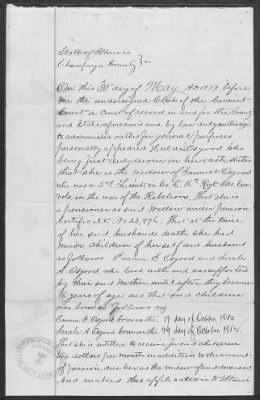 State of Illinois
Champaign County } ss
On this 30" day of May AD 1877 before
me the undersigned Clerk of the Circuit
Court a Court of record in and for the County
and State aforesaid and by law duly authorized
to administer oaths for general purposes
personally appeared Osgood who
being first duly sworn on her oath states
that she is the widow of Samuel Osgood
who was a 2nd Lieut in Co Regt
in the war of the Rebellion. That she is
a pensioner as said Widow under pension
Certificate No. That at the time
of her said husbands death she had
minor children of herself and husband
as follows Emma E Osgood and Sarah
A Osgood who lived with and was supported
by their said Mother until after they became
16 years of age and that said children
was born as follows viz
Emma E. Osgood born on the day of October
Sarah A Osgood born on the day of October
That she is entitled to receive for said children
two dollars per month in addition to the amount
of pension due her as the widow of said deceased
And makes this application to obtain